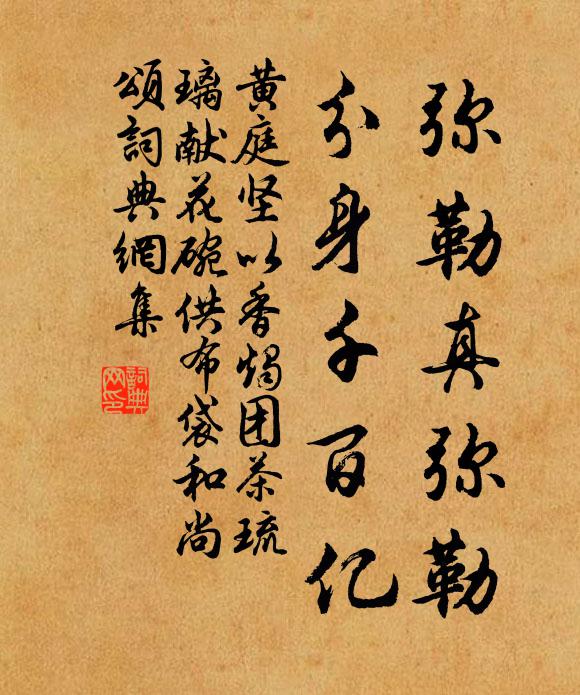 弥勒真弥勒
分身千百亿
黄庭坚以香烛团茶琉
璃献花碗供布袋和尚
颂词典網集
詞典
网印